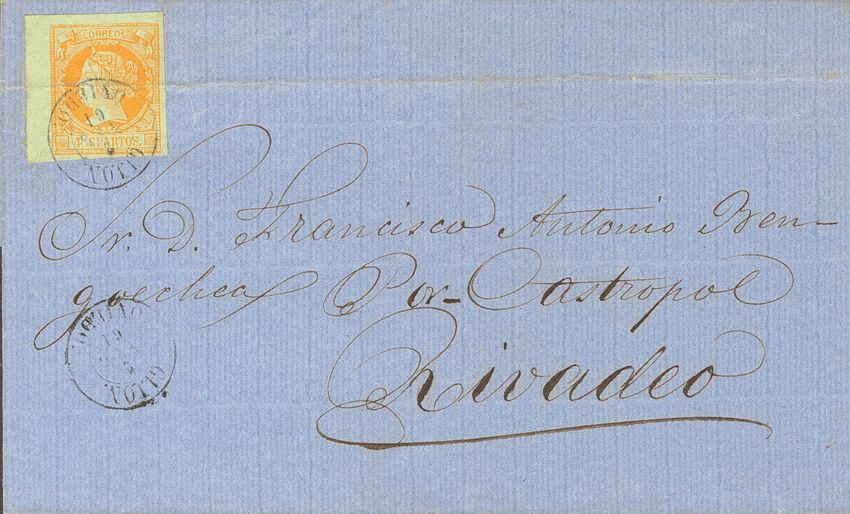 CORREOS
4 CUARTOS.
OVIEDO
19
GIJON
Sr. D. Francisco Antonio Ben-
goechea Por- Castropol
Rivadeo
OVIEDO
19
GIJON